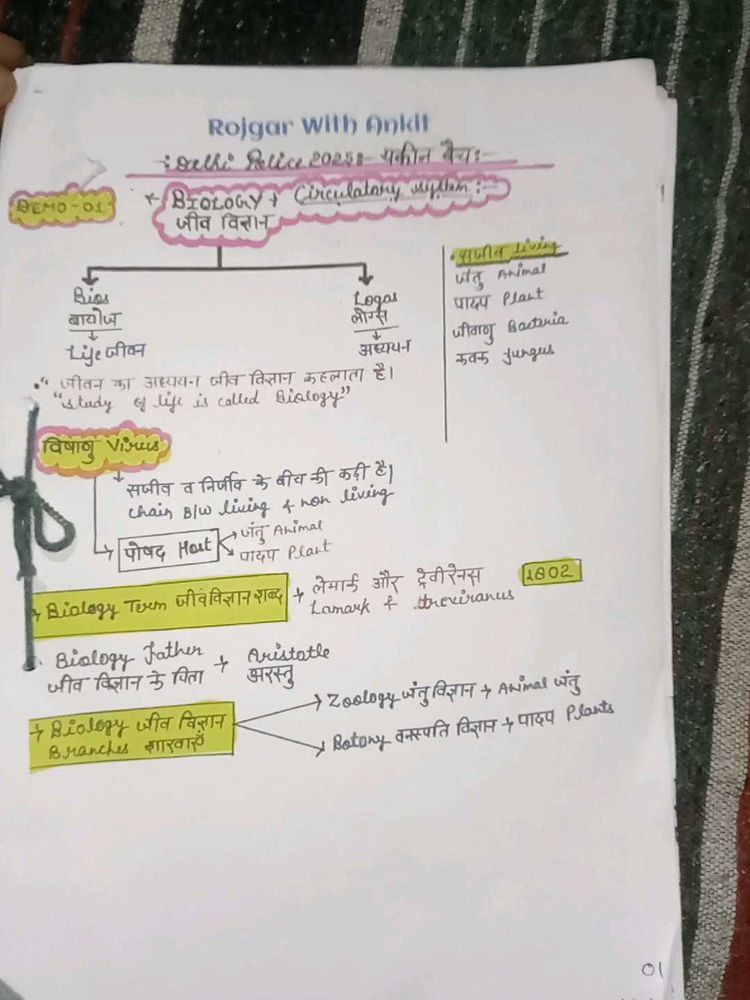 Rojgar With Ankit
Delhi Police 2025:- यकीन बैच:-
DEMO-01
* BIOLOGY + Circulatory system:-
जीव विज्ञान
Bios
बायोज
Life जीवन
Logos
लोगस
अध्ययन
• सजीव living
जंतु Animal
पादप Plant
जीवाणु Bacteria
कवक fungus
•" जीवन का अध्ययन जीव विज्ञान कहलाता है।
"study of life is called Biology"
विषाणु Virus
सजीव व निर्जीव के बीच की कड़ी है।
chain B/w living & non living
पोषद Host
जंतु Animal
पादप Plant
Biology Term जीवविज्ञान शब्द → लेमार्क और ट्रेवीरेनस 1802
Lamark & treviranus
Biology father → Aristotle
जीव विज्ञान के पिता अरस्तु
→ Biology जीव विज्ञान
Branches शाखाएँ
Zoology जंतु विज्ञान → Animal जंतु
Botony वनस्पति विज्ञान → पादप Plants
01